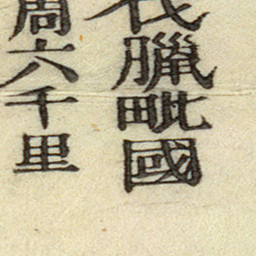 伐臘毗國
周六千里